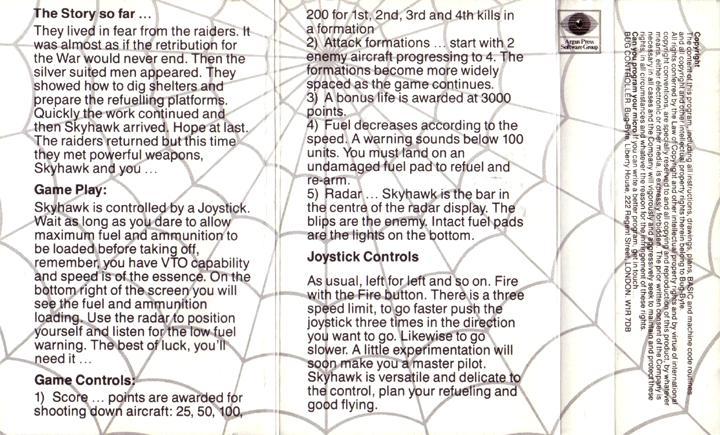 The Story so far ...
They lived in fear from the raiders. It
was almost as if the retribution for
the War would never end. Then the
silver suited men appeared. They
showed how to dig shelters and
prepare the refuelling platforms.
Quickly the work continued and
then Skyhawk arrived. Hope at last.
The raiders returned but this time
they met powerful weapons,
Skyhawk and you ...
Game Play:
Skyhawk is controlled by a Joystick.
Wait as long as you dare to allow
maximum fuel and ammunition to
be loaded before taking off,
remember, you have VTO capability
and speed is of the essence. On the
bottom right of the screen you will
see the fuel and ammunition
loading. Use the radar to position
yourself and listen for the low fuel
warning. The best of luck, you'll
need it ...
Game Controls:
1) Score ... points are awarded for
shooting down aircraft: 25, 50, 100,
200 for 1st, 2nd, 3rd and 4th kills in
a formation
2) Attack formations ... start with 2
enemy aircraft progressing to 4. The
formations become more widely
spaced as the game continues.
3) A bonus life is awarded at 3000
points.
4) Fuel decreases according to the
speed. A warning sounds below 100
units. You must land on an
undamaged fuel pad to refuel and
re-arm.
5) Radar ... Skyhawk is the bar in
the centre of the radar display. The
blips are the enemy. Intact fuel pads
are the lights on the bottom.
Joystick Controls
As usual, left for left and so on. Fire
with the Fire button. There is a three
speed limit, to go faster push the
joystick three times in the direction
you want to go. Likewise to go
slower. A little experimentation will
soon make you a master pilot.
Skyhawk is versatile and delicate to
the control, plan your refueling and
good flying.
Argus Press
Software Group
Copyright
The content of this program, including all instructions, drawings, plans, BASIC and machine code routines
and all copyright and other intellectual property rights therein belong to Bug-Byte
All rights conferred by the Law of Copyright and other intellectual property rights and by virtue of international
copyright conventions, are specially reserved to and all copying and reproduction of this product, by whatever
means, either electronic or other media, is expressly forbidden. The prior written consent of the Company is
necessary in all cases and the Company will vigorously and aggressively seek to maintain and protect these
rights, in all circumstances and whatever the reason for the infringement of these rights
Can you program your micro. If you can write a better program, get in touch
BUG CONTROLLER, Bug-Byte, Liberty House, 222 Regent Street, LONDON, W1R 7DB